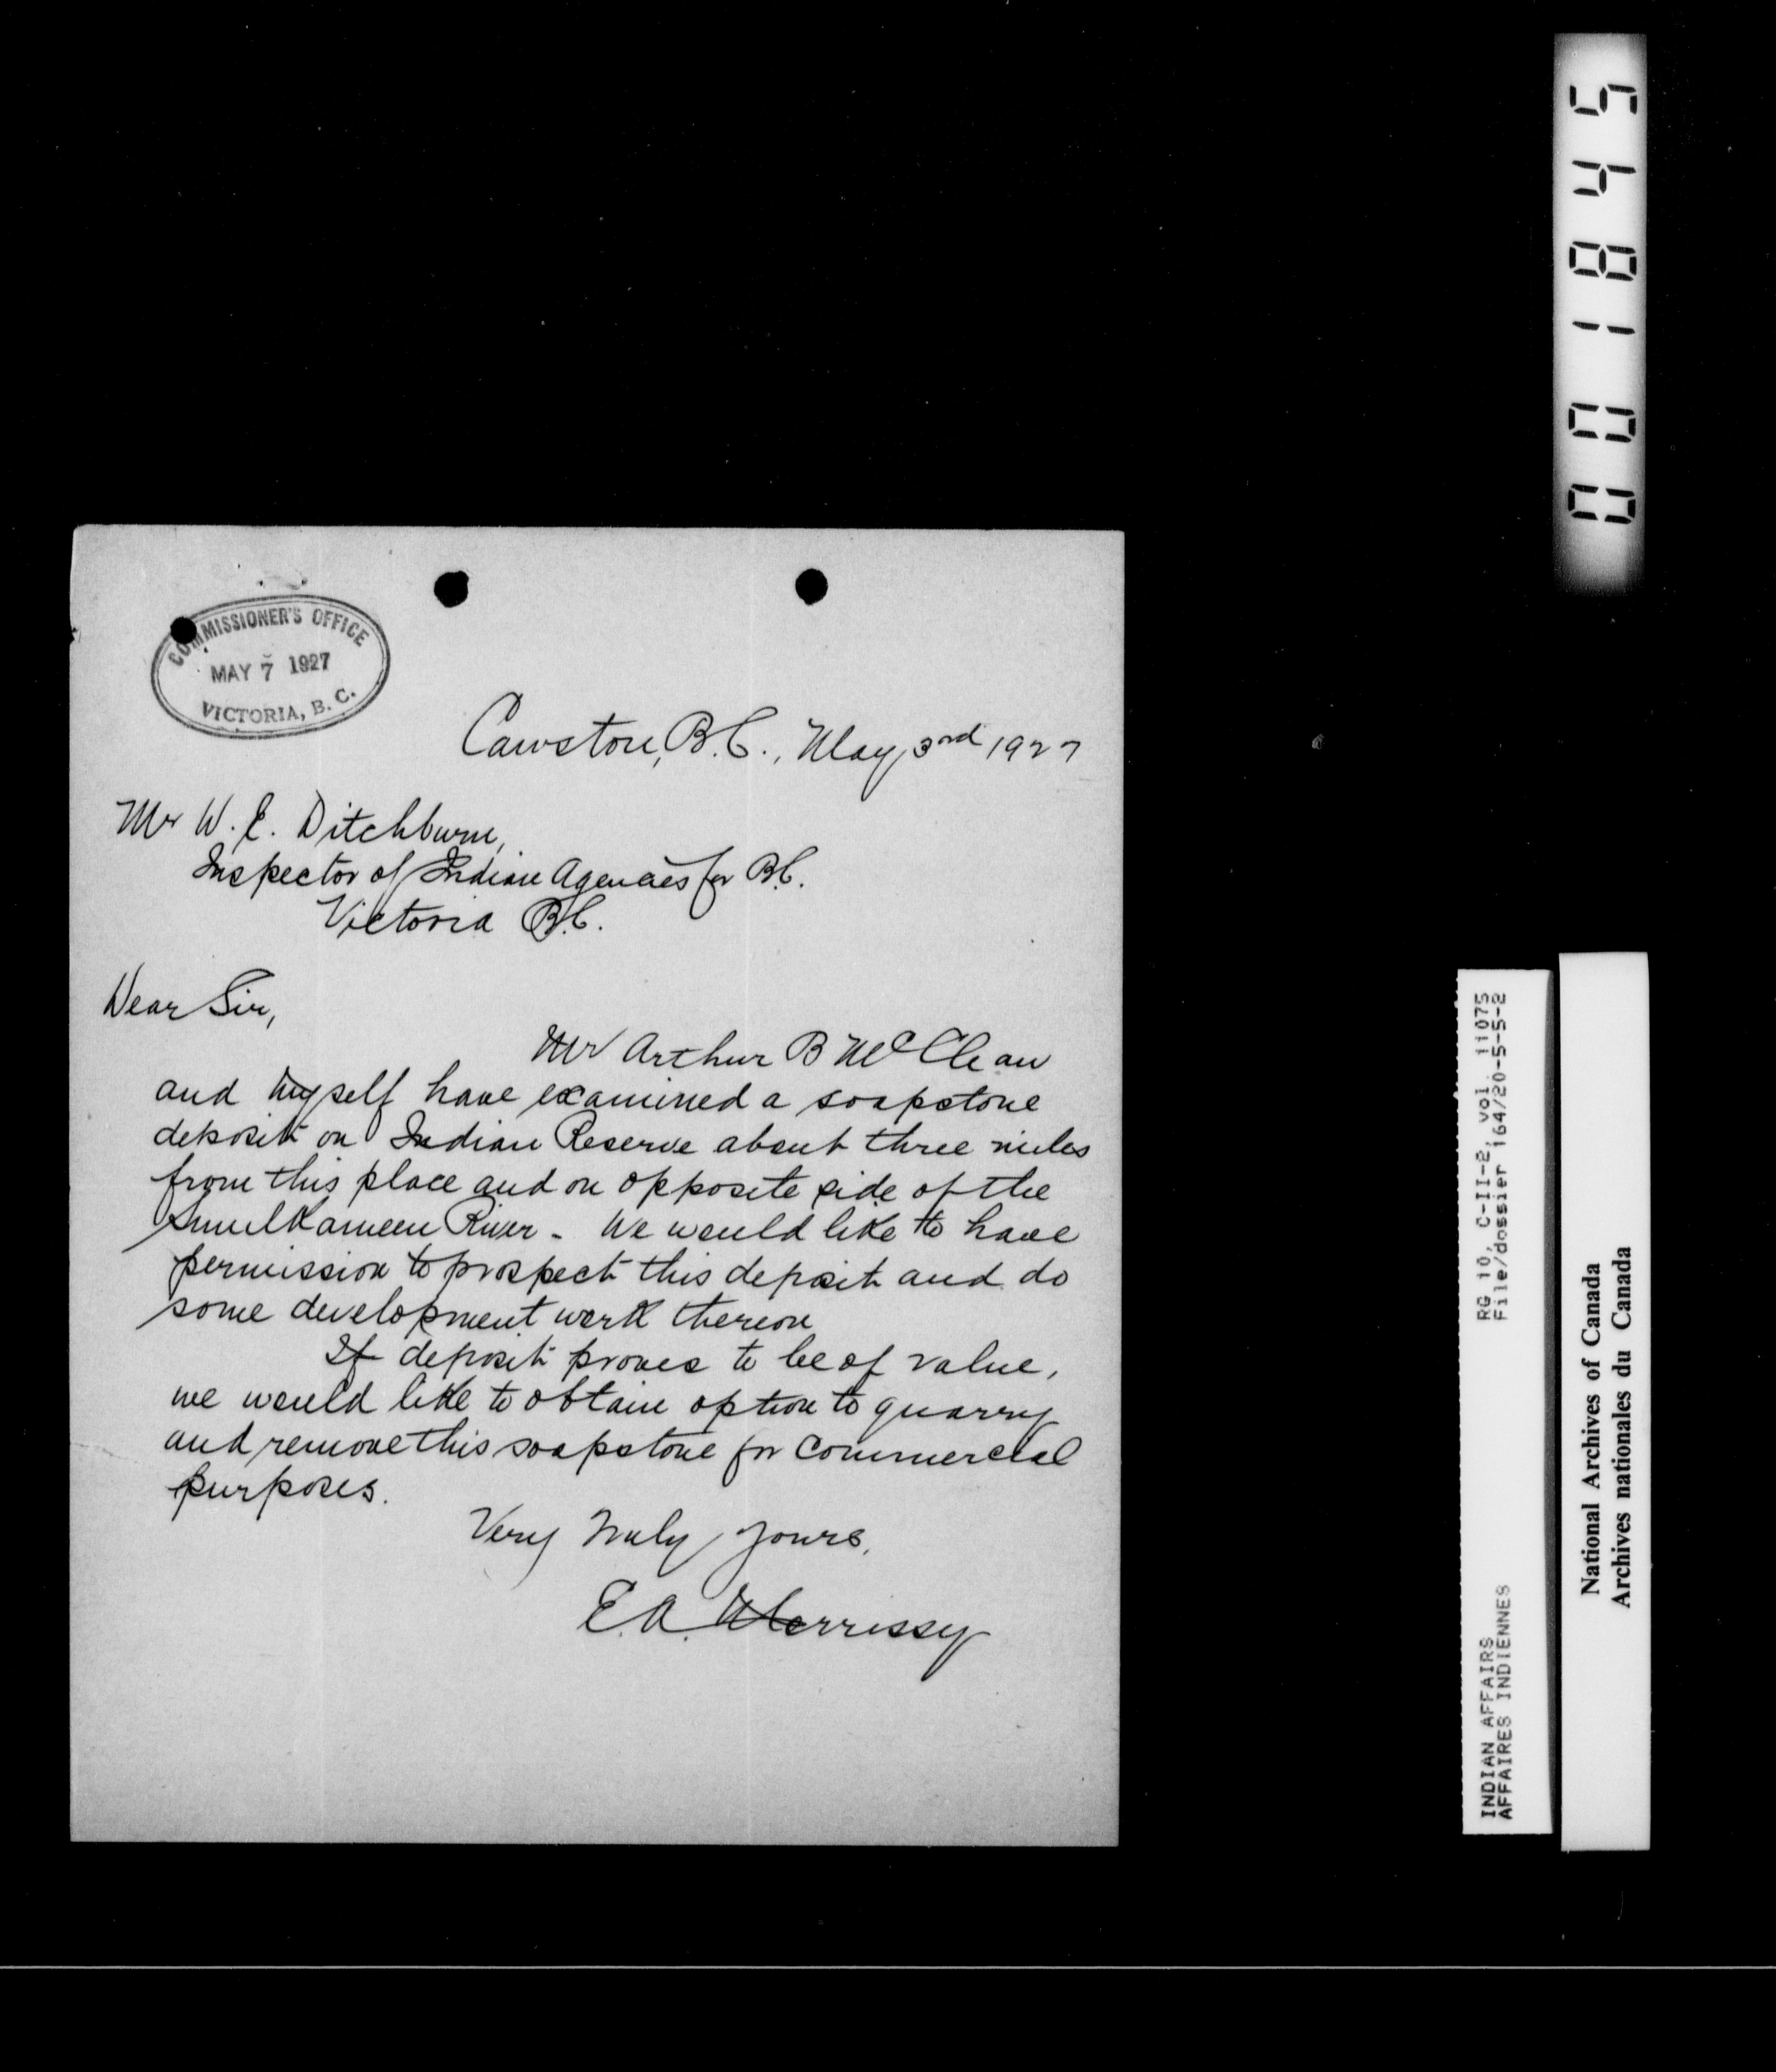 COMMISSIONER'S OFFICE
MAY 7 1927
VICTORIA, B. C.
Cawston, B.C., May, 3rd 1927
Mr W. E. Ditchburn,
Inspector of Indian Agencies for B.C.
Victoria B.C.
Dear Sir,
Mr Arthur B McClean
and myself have examined a soapstone
deposit on Indian Reserve about three miles
from this place and on opposite side of the
Similkameen River - We would like to have
permission to prospect this deposit and do
some development work thereon
If deposit proves to be of value,
we would like to obtain option to quarry
and remove this soapstone for commercial
purposes.
Very truly yours,
E.A. Morrissey
001845
RG 10, C-II-2, vol. 11075
File/dossier 164/20-5-5-2
INDIAN AFFAIRS
AFFAIRES INDIENNES
National Archives of Canada
Archives nationales du Canada